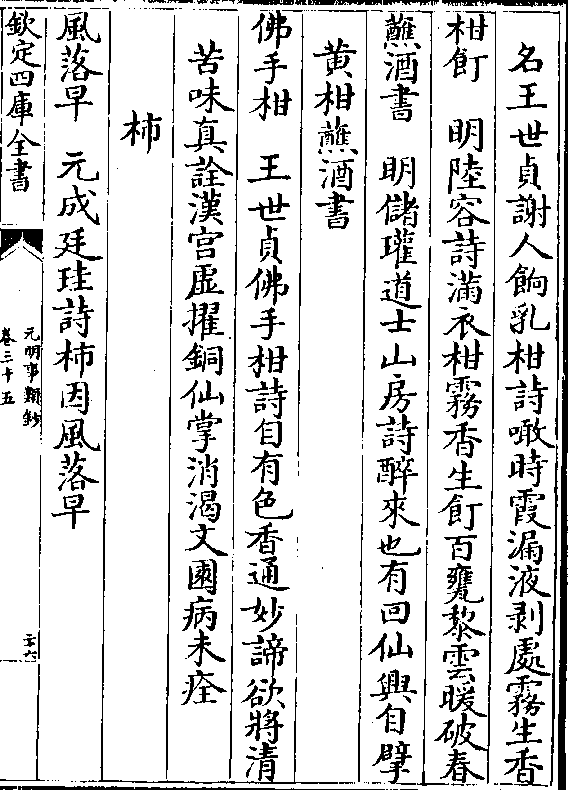 名王世貞謝人餉乳柑詩噉時霞漏液剥處霧生香
柑飣　明陸容詩滿衣柑霧香生飣百甕黎雲暖破春
蘸酒書　明儲瓘道士山房詩醉來也有回仙興自擘
黄柑蘸酒書
佛手柑　王世貞佛手柑詩自有色香通妙諦欲將清
苦味真詮漢宫虚擢銅仙掌消渴文園病未痊
柿
風落早　元成廷珪詩柿因風落早
欽定四庫全書
元明事類鈔
卷三十五
三十六